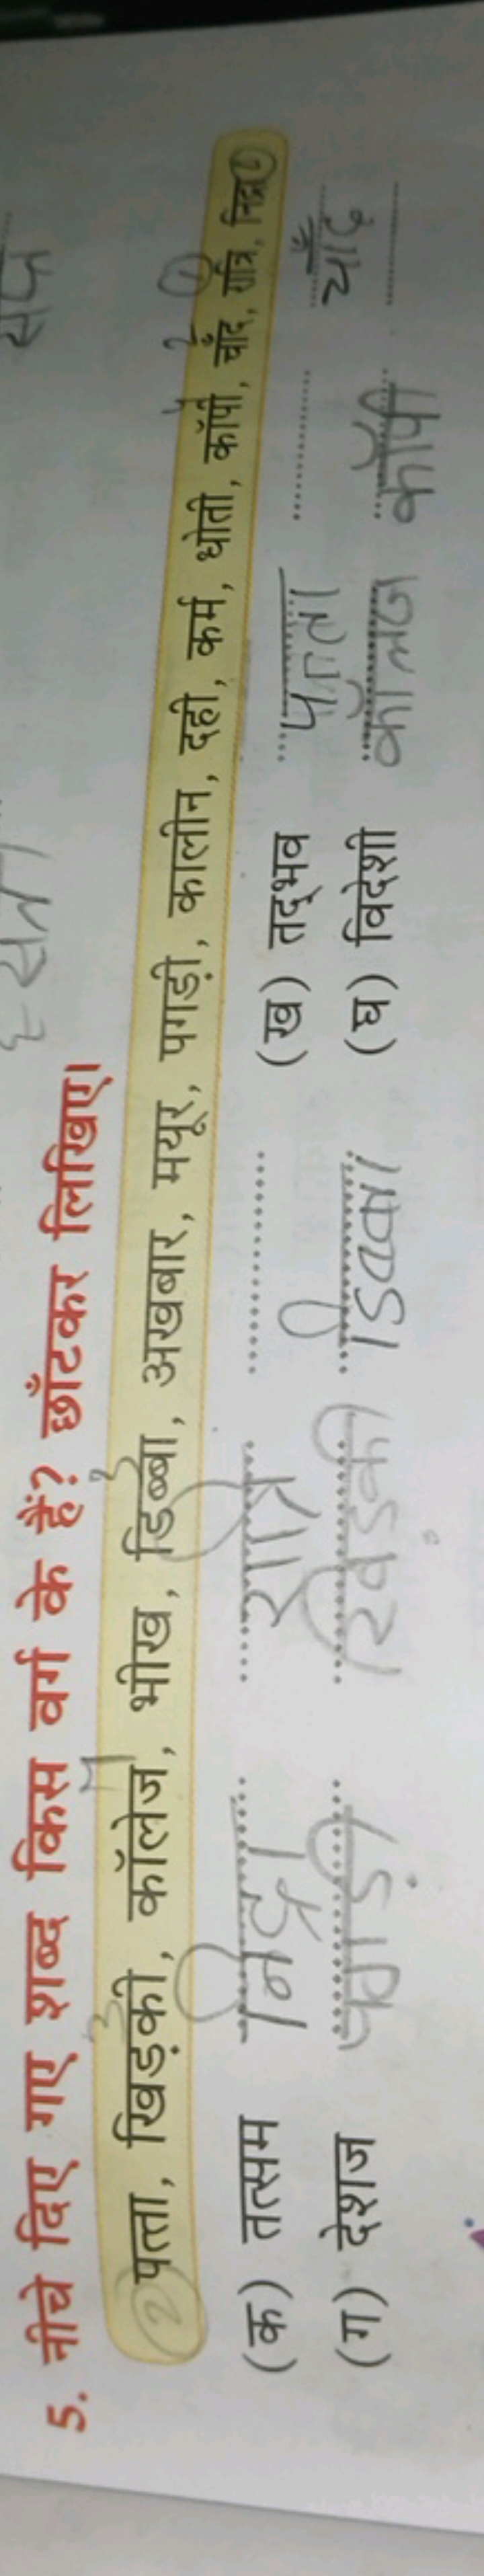 5. नीचे दिए गए शब्द किस वर्ग के हैं? छाँटकर लिखिए।
पत्ता, खिड़की, कॉलेज, भीख, डिब्बा, अखबार, मयूर, पगड़ी, कालीन, दही, कर्म, धोती, कॉपी, चाँद, रात्रि, निद्रा
(क) तत्सम निद्रा रात्रि (ख) तद्भव पत्ता चाँद
(ग) देशज पगडी खिडकी डिब्बा (घ) विदेशी कॉलेज कॉपी